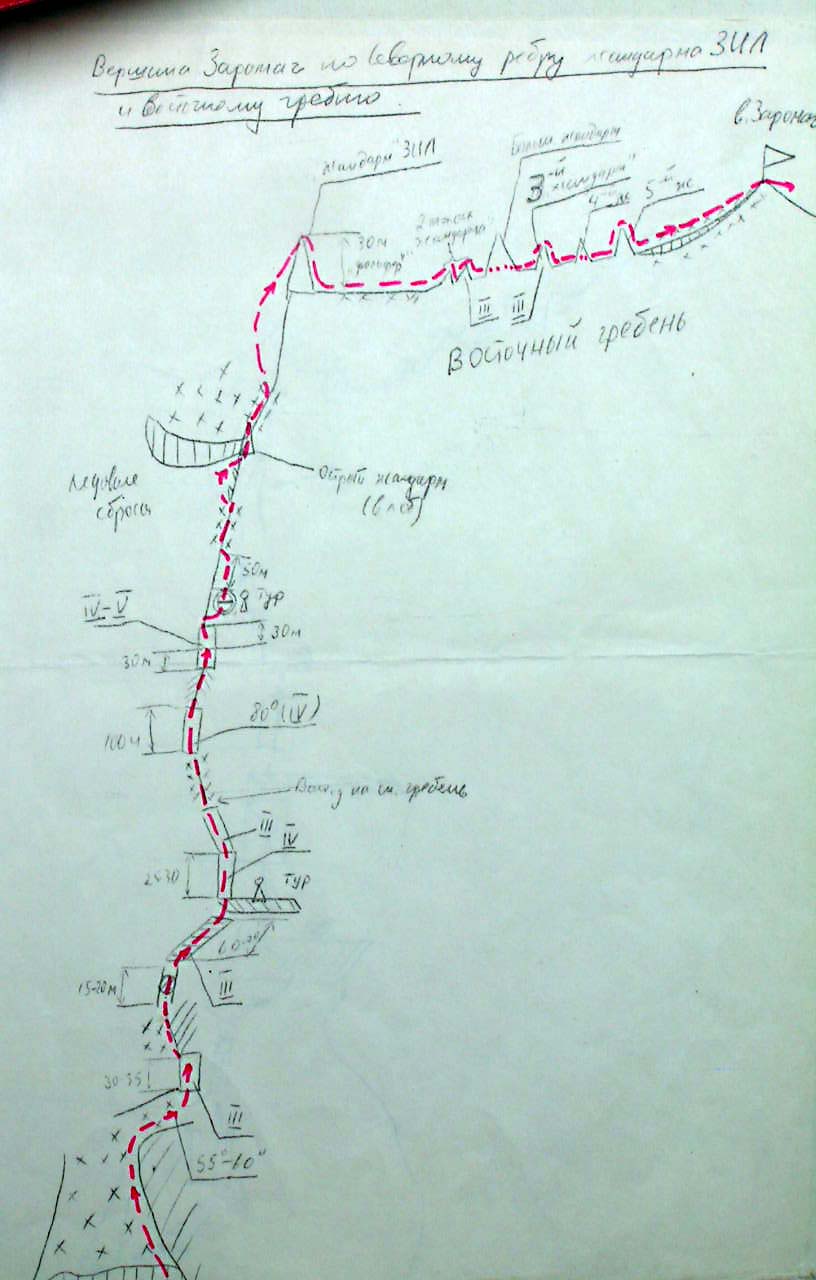 Вершина Заромаг по Северному ребру жандарма ЗИЛ
и Восточному гребню.
в. Заромаг
Жандарм "ЗИЛ"
Больш. жандарм
3-й
"жандарм"
4-й ж
5-й ж
30м
III
III
Восточный гребень
Ледовые
сбросы
Острый жандарм
(в лоб)
50м
Тур
IV-V
30м
30м
80° (IV)
100м
Выход на гребень
III
IV
25-30
Тур
III
15-20м
30-35
III
55°-60°